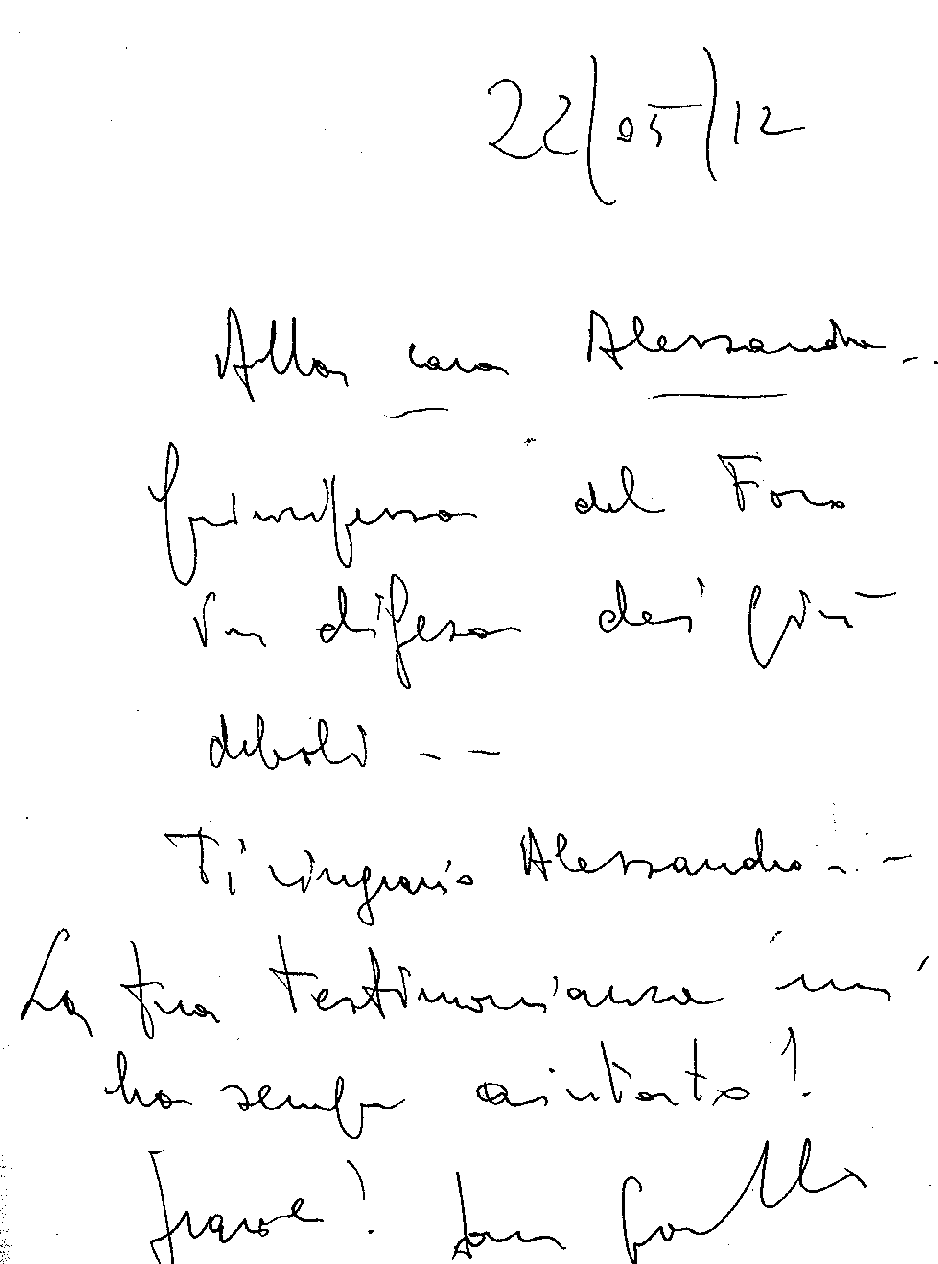 22/05/12
Alla cara Alessandra..
principessa del Foro
in difesa dei più
deboli --
Ti ringrazio Alessandra..-
La tua testimonianza mi
ha sempre aiutato!
Grazie!